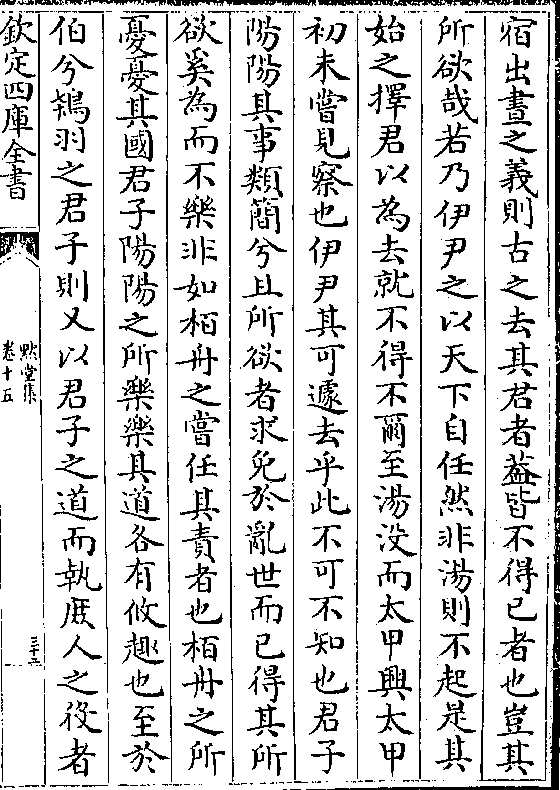 宿出晝之義則古之去其君者葢皆不得已者也豈其
所欲哉若乃伊尹之以天下自任然非湯則不起是其
始之擇君以為去就不得不爾至湯没而太甲興太甲
初未嘗見察也伊尹其可遽去乎此不可不知也君子
陽陽其事類簡兮且所欲者求免於亂世而已得其所
欲奚為而不樂非如柏舟之嘗任其責者也柏舟之所
憂憂其國君子陽陽之所樂樂其道各有攸趣也至於
伯兮鴇羽之君子則又以君子之道而執庶人之役者
欽定四庫全書
默堂集
卷十五